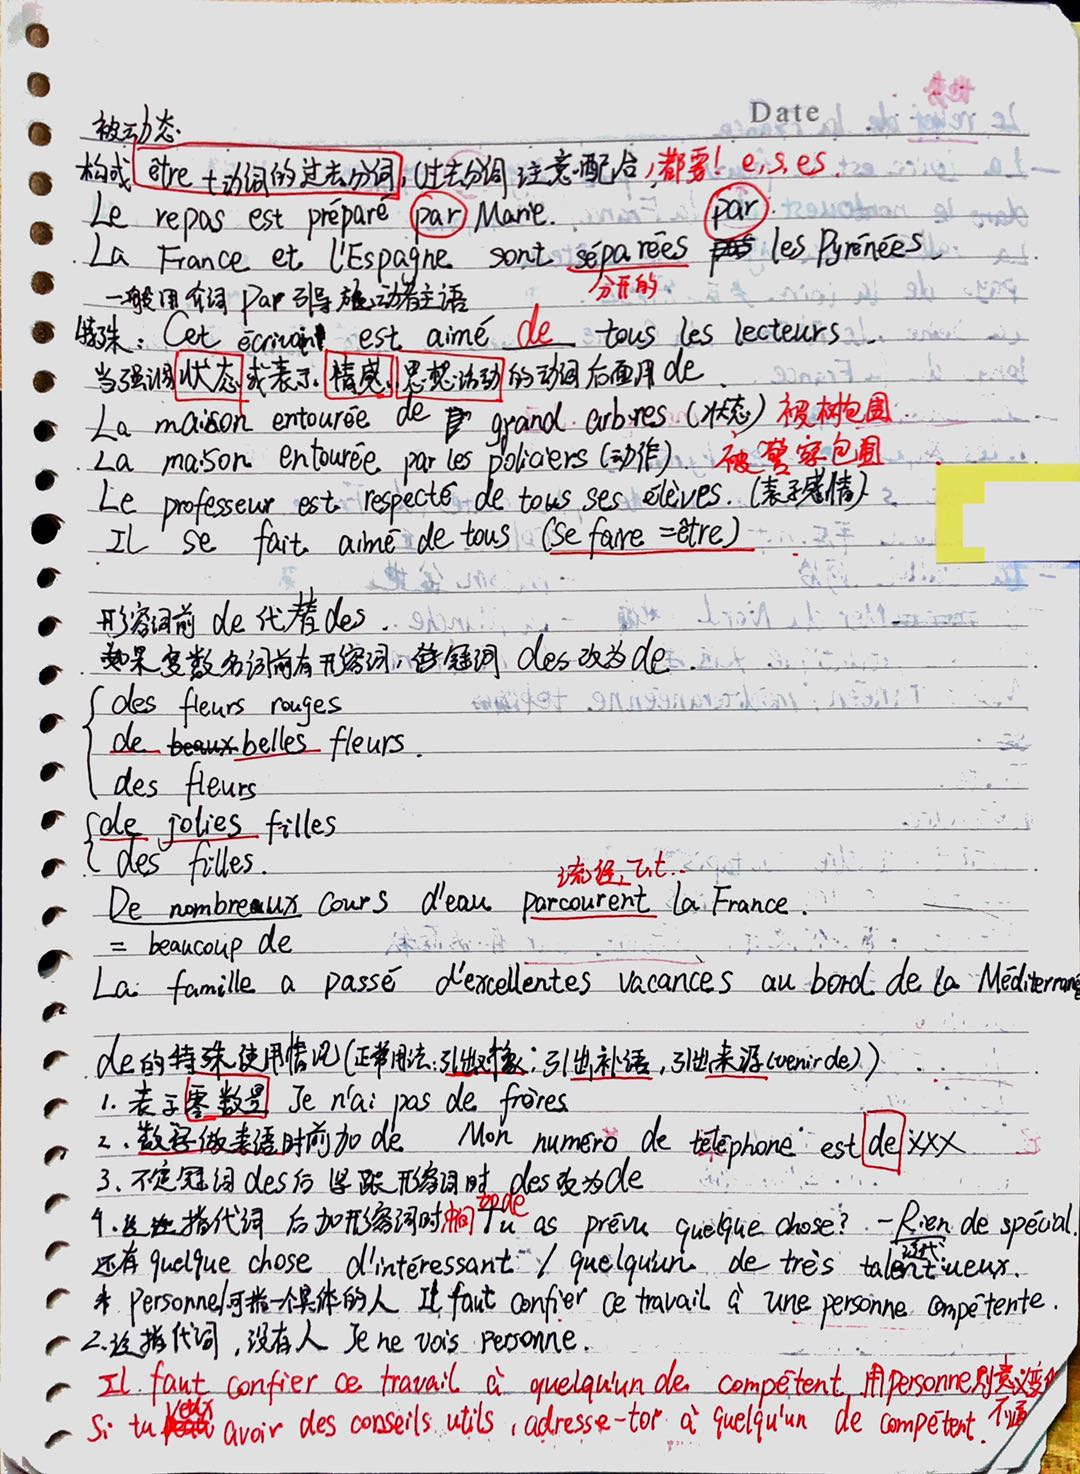 Date
被动态
构成 être + 动词的过去分词, (过去分词 注意配合, 都要! e, s, es.
Le repas est préparé par Marie. par
La France et l'Espagne sont séparées les Pyrénées.
分开的
一般用介词 par 引导施动者主语
特殊: Cet écrivain est aimé de tous les lecteurs.
当强调 状态 或表示 情感, 思想活动 的动词后面用 de
La maison entourée de grand arbres (状态) 被树包围
La maison entourée par les policiers (动作) 被警察包围
Le professeur est respecté de tous ses élèves. (表示感情)
Il se fait aimé de tous (Se faire = être)
形容词前 de 代替 des.
如果复数名词前有形容词, 冠词 des 改为 de
des fleurs rouges
de beaux belles fleurs.
des fleurs
de jolies filles
des filles.
流经
De nombreaux cours d'eau parcourent la France.
= beaucoup de
La famille a passé d'excellentes vacances au bord de la Méditerrané
de 的特殊使用情况 (正常用法: 引出对象; 引出补语, 引出来源 (venir de))
1. 表示零数量 Je n'ai pas de frères
2. 数字做表语时前加 de Mon numéro de téléphone est de XXX
3. 不定冠词 des 后紧跟形容词时 des 改为 de
4. 泛指代词 后加形容词时 中间加de Tu as prévu quelque chose? - Rien de spécial.
泛代
还有 quelque chose d'intéressant / quelqu'un de très talentueux.
* Personne 1可指一个具体的人 Il faut confier ce travail à une personne compétente.
2. 泛指代词, 没有人 Je ne vois personne.
Il faut confier ce travail à quelqu'un de compétent, 用 personne 则意义变
Si tu veux avoir des conseils utils, adresse-toi à quelqu'un de compétent.